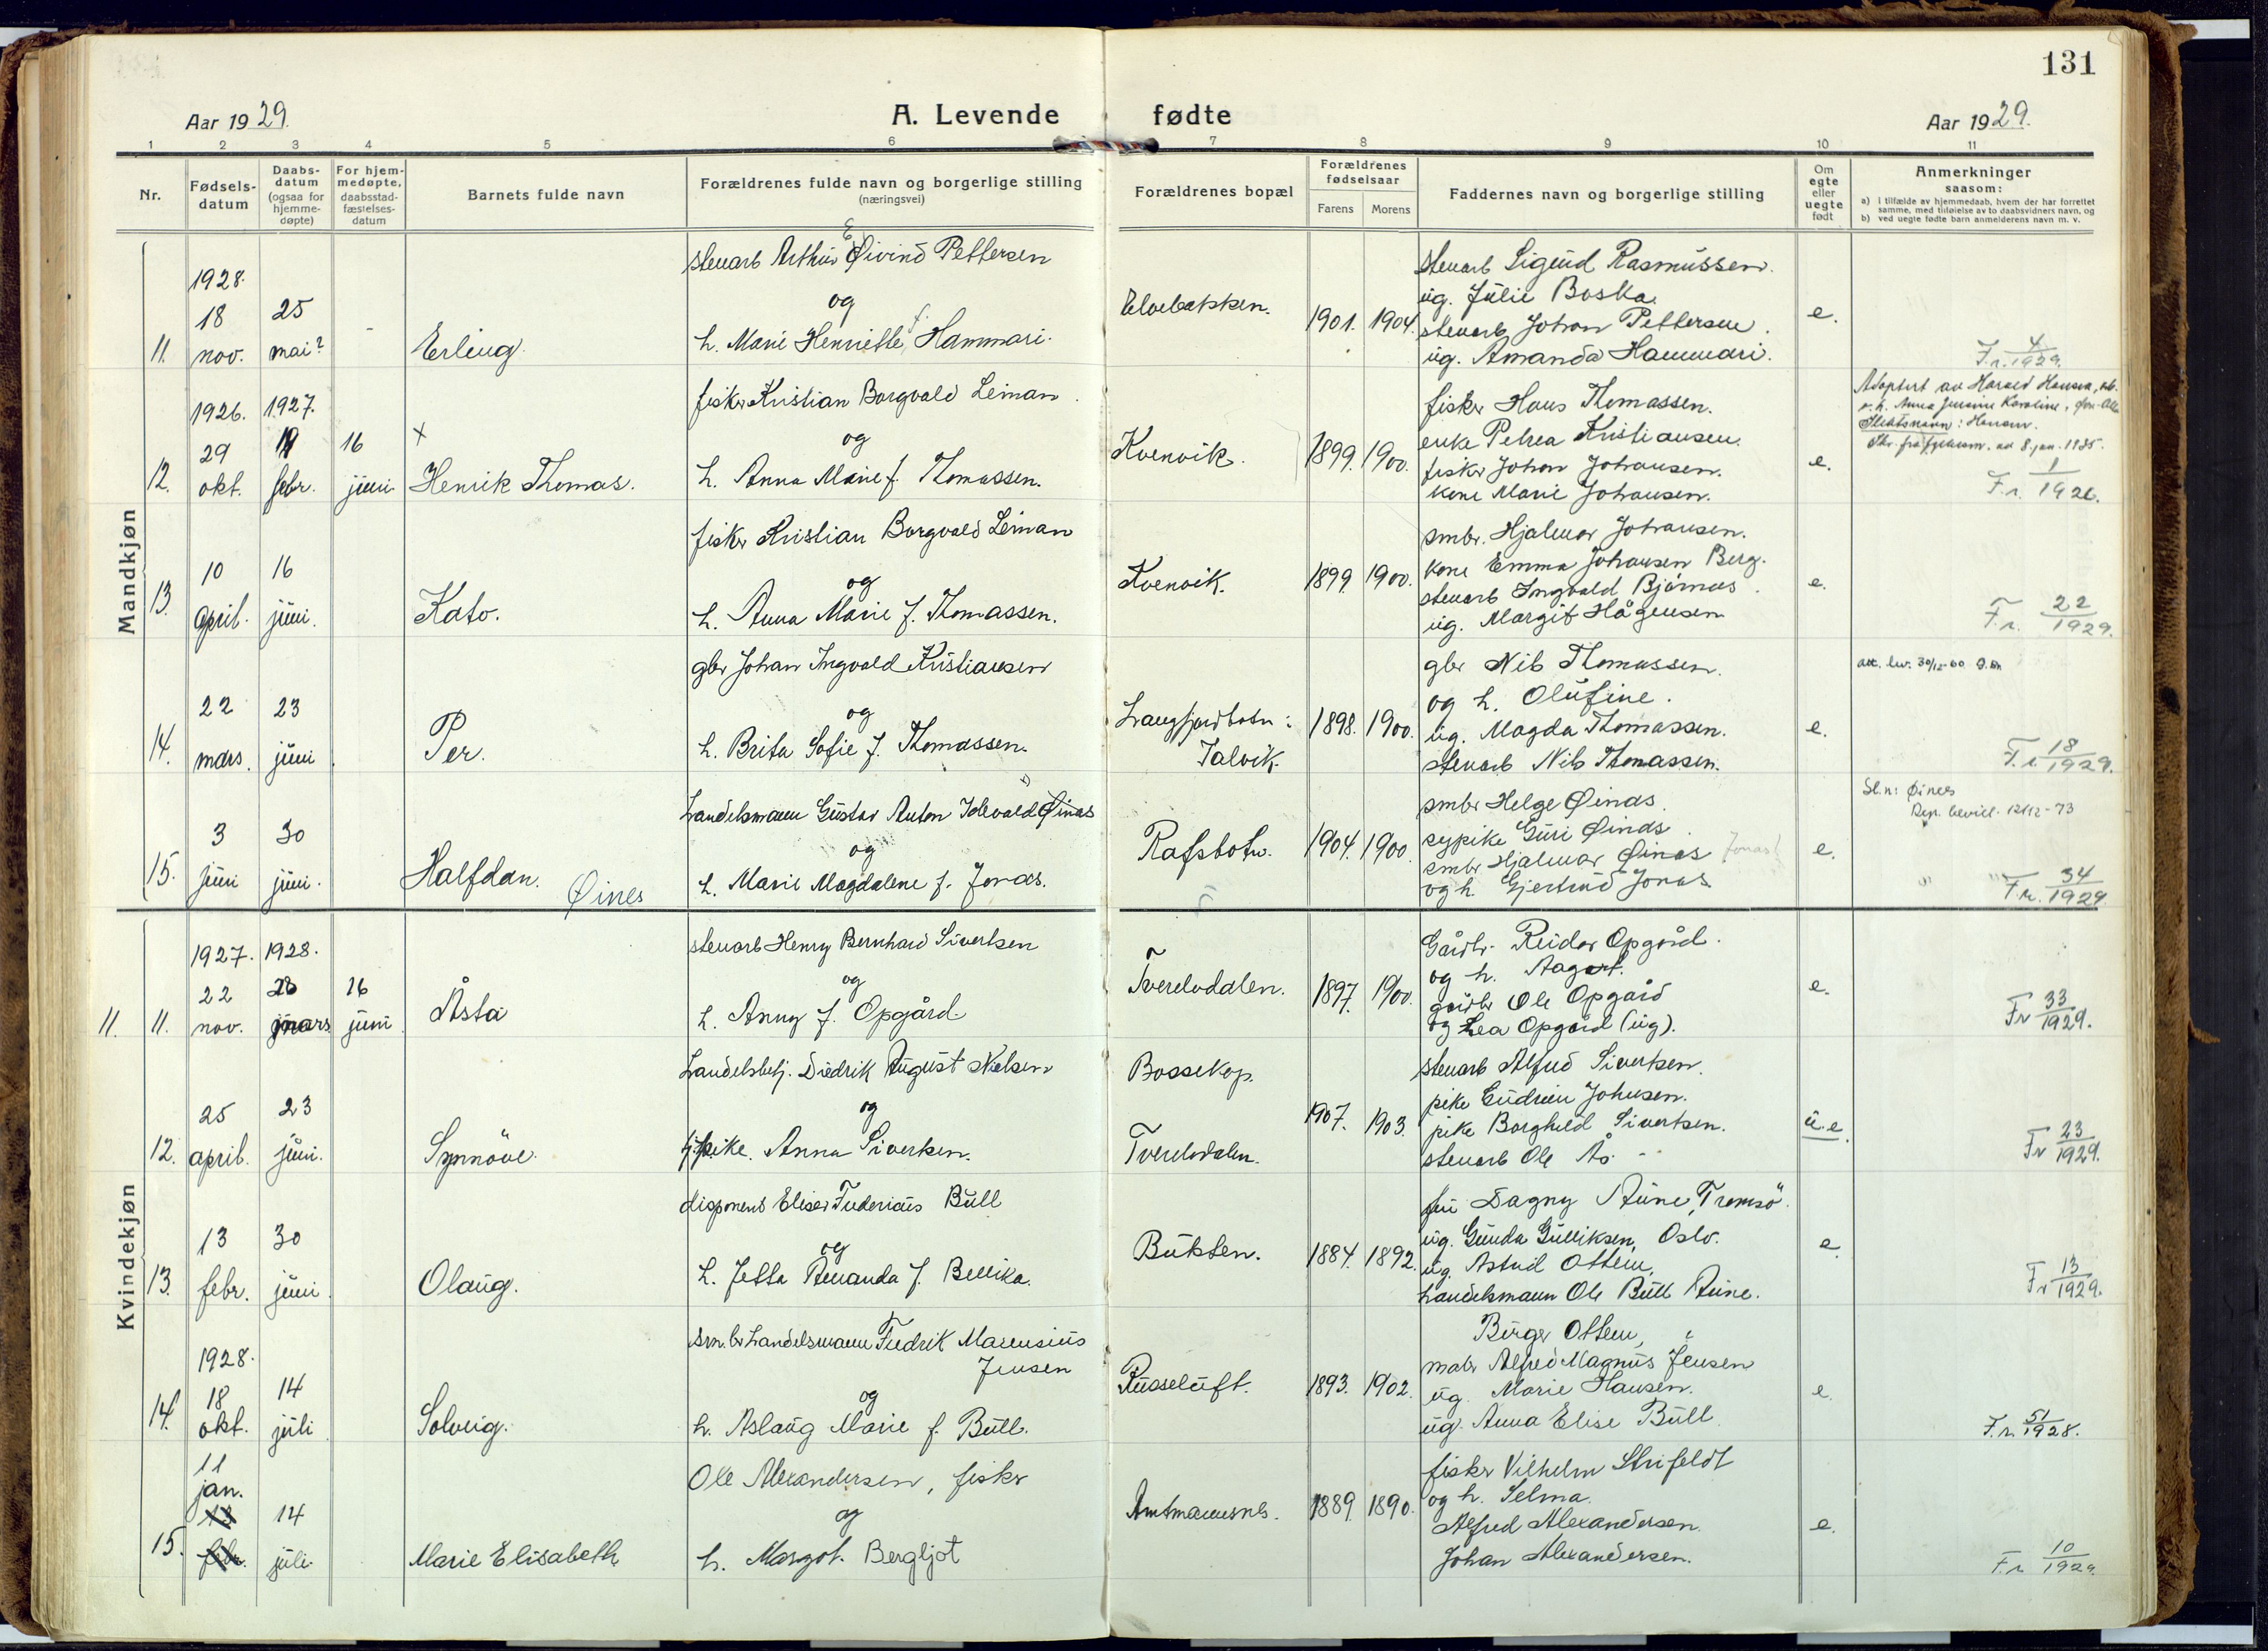 131
Aar 1929.
A. Levende fødte
Aar 1929.
1 2 3 4 5 6 7 8 9 10 11
Nr.
Fødsels-
datum
Daabs-
datum
(ogsaa for
hjemme-
døpte)
For hjem-
medøpte,
daabsstad-
fæstelses-
datum
Barnets fulde navn
Forældrenes fulde navn og borgerlige stilling
(næringsvei)
Forældrenes bopæl
Forældrenes
fødselsaar
Farens Morens
Faddernes navn og borgerlige stilling
Om
egte
eller
uegte
født
Anmerkninger
saasom:
a) i tilfælde av hjemmedaab, hvem der har forrettet
samme, med tilføielse av to daabsvidners navn, og
b) ved uegte fødte barn anmelderens navn m. v.
Mandkjøn
11.
1928.
18
nov.
25
mai?
Erling.
stenarb Arthur Øivind Pettersen
og
h. Marie Henriette f. Hammari.
Elvebakken.
1901. 1904.
stenarb Sigurd Rasmussen.
ug. Julie Boska.
stenarb Johan Pettersen.
ug. Amanda Hammari.
e.
F.r. 4/1929.
12.
1926.
29
okt.
1927.
febr.
16
juni
x
Henrik Thomas.
fisker Kristian Borgvald Leiman
og
h. Anna Marie f. Thomassen.
Kvenvik.
1899. 1900.
fisker Hans Thomassen.
enke Petrea Kristiansen.
fisker Johan Johansen.
kone Marie Johansen.
e.
Adoptert av Harald Hansen,
Slektsnavn: Hansen.
8. jan. 1935.
F.r. 1/1926.
13.
10
april.
16
juni.
Kato.
fisker Kristian Borgvald Leiman
og
h. Anna Marie f. Thomassen.
Kvenvik.
1899. 1900.
smbr. Hjalmar Johansen.
kone Emma Johansen Berg.
stenarb Ingvald Bjørnaas.
ug. Margit Hågensen
e.
F.r. 22/1929.
14.
22
mars.
23
juni
Per.
gbr Johan Ingvald Kristiansen
og
h. Brita Sofie f. Thomassen.
Langfjordbotn:
Talvik.
1898. 1900.
gbr Nils Thomassen.
og h. Olufine.
ug. Magda Thomassen.
stenarb Nils Thomassen.
e.
att. lev. 30/12-60
F.r. 18/1929.
15.
3
juni
30
juni.
Halfdan.
Øines
handelsmann Gustav Anton Øinas
og
h. Marie Magdalene f. Jonas.
Rafsbotn.
1904. 1900.
smbr Helge Øinas.
sypike Guri Øinas.
smbr Hjalmar Øinas
og h. Gjertrud Jonas.
e.
Sl.n: Øines
Dep. bevill. 12/12-73
F.r. 34/1929
Kvindekjøn
11. 11.
1927.
22
nov.
1928.
mars
16
juni
Åsta
stenarb Henry Bernhard Sivertsen
og
h. Anny f. Opgård.
Tverelvdalen.
1897. 1900.
Gårdbr. Reidar Opgård.
og h. Aagot.
gårdbr Ole Opgård
og Lea Opgård (ug).
e.
Fr 33/1929.
12.
25
april.
23
juni.
Synnöve.
Handelsbetj. Diedrik August Nielsen
og
pike. Anna Sivertsen.
Bossekop.
Tverelvdalen.
1907. 1903.
stenarb Alfred Sivertsen.
pike Gudrun Johnsen.
pike Borghild Sivertsen.
stenarb Ole Ås.
u.e.
Fr 23/1929.
13.
13
febr.
30
juni.
Olaug.
disponent Eliser Fredericius Bull
og
h. Jetta Amanda f. Bellika.
Bukten.
1884. 1892.
fru Dagny Aune, Tromsö.
ug. Gunda Gulliksen, Oslo.
ug. Astrid Ottem,
handelsmann Ole Bull Aune.
e.
Fr 13/1929.
14.
1928.
18
okt.
14
juli
Solveig.
handelsmann Fredrik Marensius
Jensen
og
h. Aslaug Marie f. Bull.
Russeluft.
1893. 1902.
Birger Ottem,
Alfred Magnus Jensen
ug. Marie Hansen.
ug. Anna Elise Bull.
e.
F.r. 51/1928.
15.
11
jan.
14
juli.
Marie Elisabeth
Ole Alexandersen, fisker
og
h. Margot. Bergljot
Amtmannsnes.
1889. 1890.
fisker Vilhelm Strifeldt
og h. Selma.
Alfred Alexandersen.
Johan Alexandersen.
e.
F.r. 10/1929.